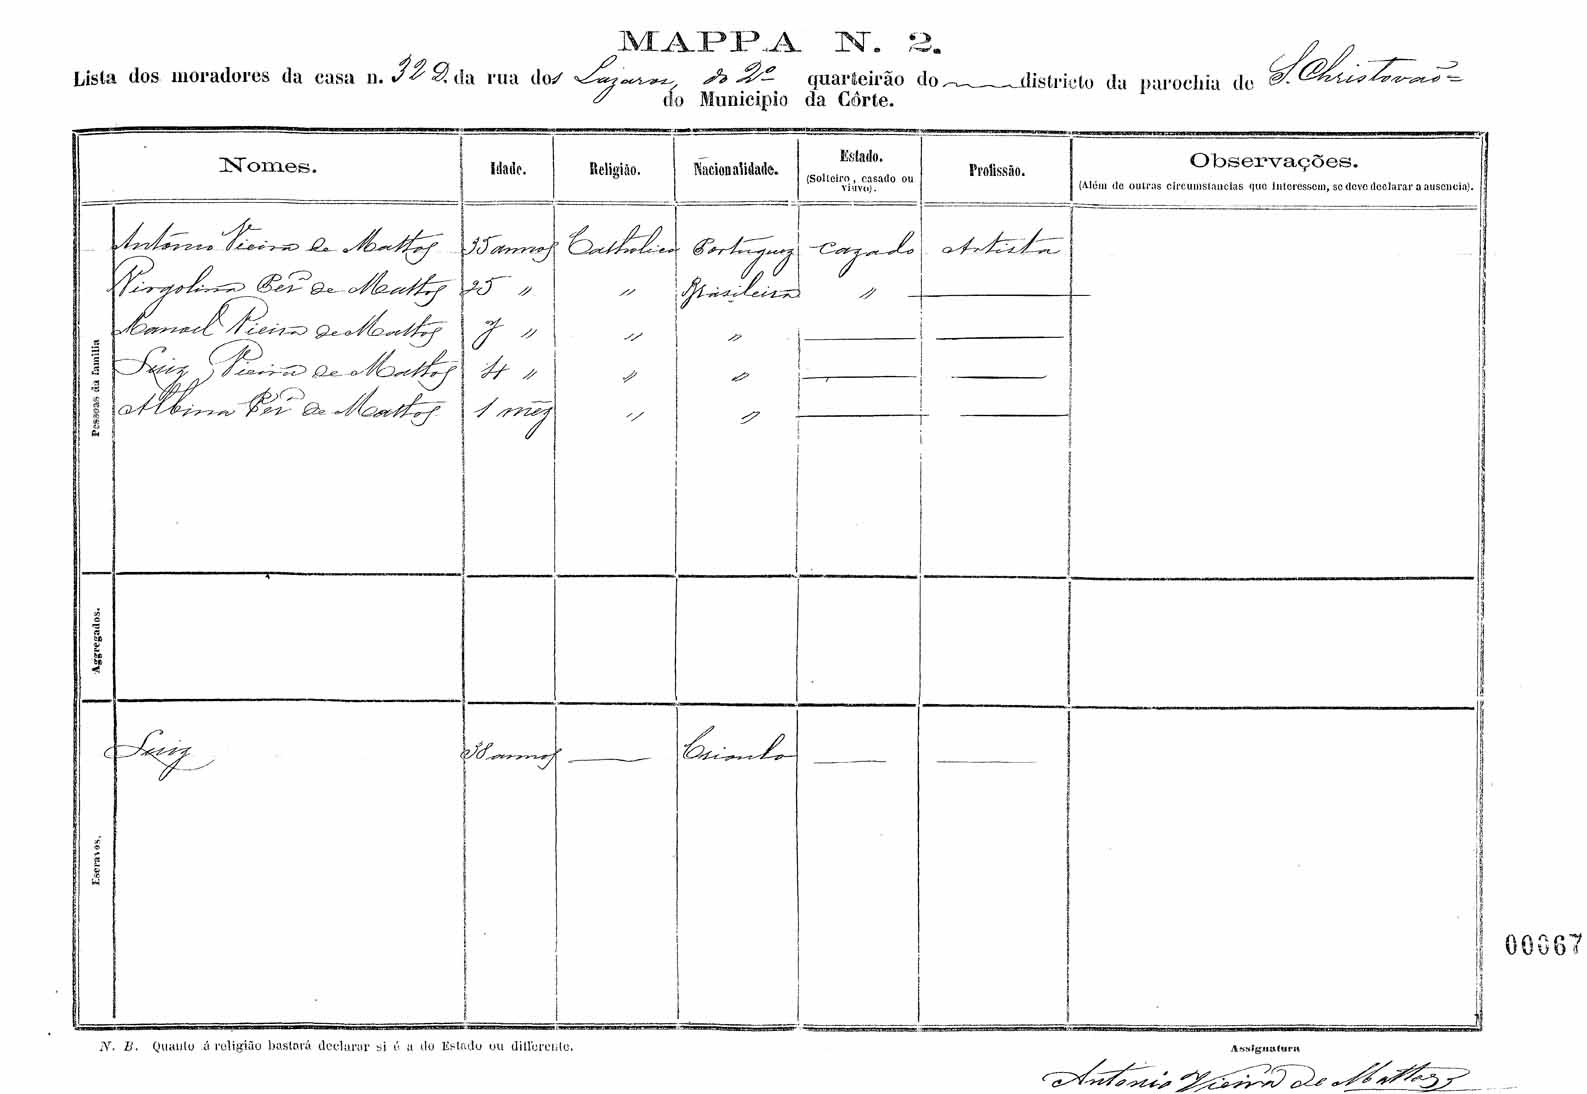 MAPPA N. 2.
Lista dos moradores da casa n. 32 D. da rua dos Lazaros, do 2º quarteirão do districto da parochia de S. Christovaõ=
do Municipio da Côrte.
Nomes. Idade. Religião. Nacionalidade. Estado. Profissão. Observações.
(Solteiro, casado ou viuvo). (Além de outras circumstancias que interessem, se deve declarar a ausencia).
Pessoas da familia
Antonio Vieira de Mattos 35 annos Catholico Portuguez cazado Artista
Virgolina Perª de Mattos 25 " " Brasileira "
Manoel Vieira de Mattos 7 " " "
Luiz Vieira de Mattos 4 " " "
Albina Perª de Mattos 1 mez " "
Aggregados.
Escravos.
Luiz 38 annos Crioulo
00067
N. B. Quanto á religião bastará declarar si é a do Estado ou differente.
Assignatura
Antonio Vieira de Mattos